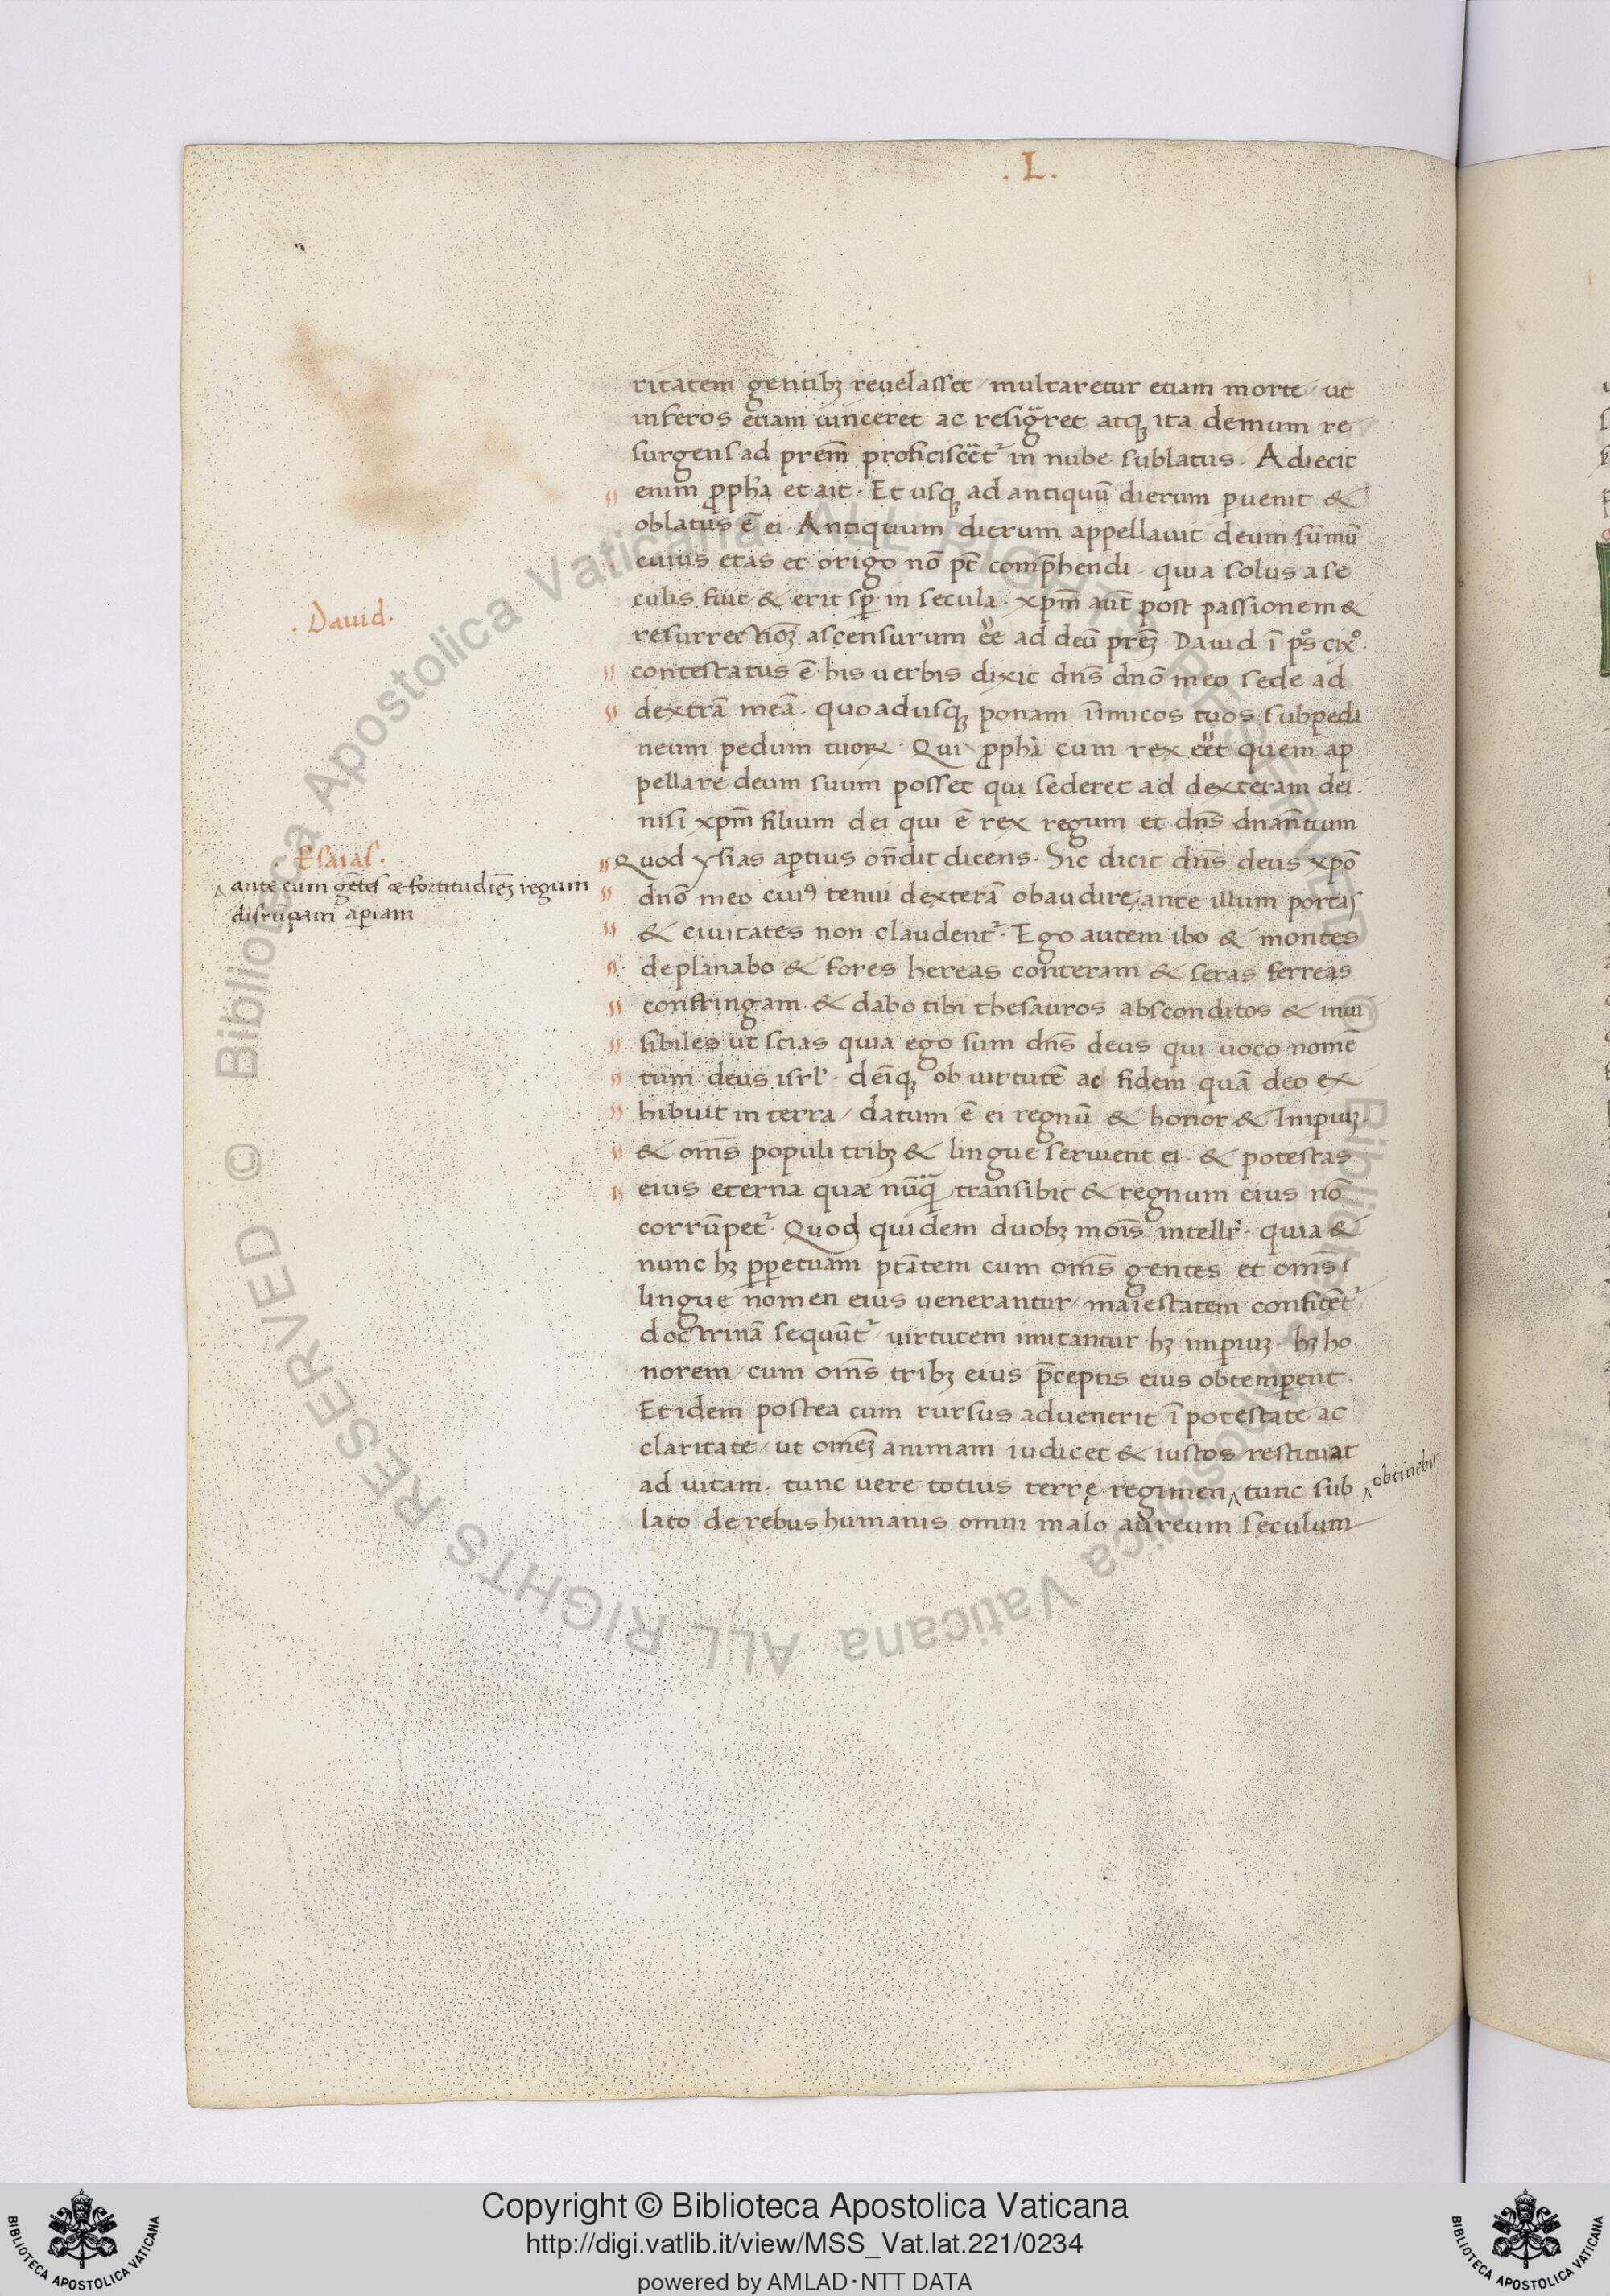 . L .
ritatem gentibꝫ reuelasset / multaretur etiam morte / ut
inferos etiam uinceret ac resigͣret atqꝫ ita demum re
surgens ad prem̄ proficiscēt᷑ in nube sublatus. Adiecit
enim ꝓpha et ait. Et usqꝫ ad antiquū dierum ꝑuenit &
oblatus ē ei. Antiquum dierum appellauit deum sūmū
cuius etas et origo nō pt̄ comp̄hendi. quia solus a se
culis fuit & erit sꝑ in secula. xp̄m aut̄ post passionem &
. Dauid.
resurrectiōꝫ ascensurum eē ad deū preꝫ̄ Dauid ī ps̊ cix̊.
contestatus ē his uerbis dixit dn̄s dnō meo sede ad
dextrā meā. quoadusqꝫ ponam īimicos tuos subpedi
neum pedum tuoꝝ. Qui ꝓpha cum rex eēt quem ap
pellare deum suum posset qui sederet ad dexteram dei
nisi xp̄m filium dei qui ē rex regum et dn̄s dnān̄tium
Esaias.
Quod ysias aꝑtius on̄dit dicens. Sic dicit dn̄s deus xpō
‸ ante eum gētes & fortitudīeꝫ regum
disrūpam aꝑiam
dnō meo cuiꝰ tenui dexterā obaudire ‸ ante illum portas
& ciuitates non claudent᷑. Ego autem ibo & montes
deplanabo & fores hereas conteram & seras ferreas
confringam & dabo tibi thesauros absconditos & inui
sibiles ut scias quia ego sum dn̄s deus qui uoco nomē
tuum deus isrl̓. deīqꝫ ob uirtutē ac fidem quā deo ex
hibuit in terra / datum ē ei regnū & honor & Imꝑiuꝫ.
& oms̄ populi tribꝫ & lingue seruient ei. & potestas
eius eterna quæ nūqͣ transibit & regnum eius nō
corrūpet᷑. Quod quidem duobꝫ mois̄ intellr̓. quia &
nunc hꝫ ꝑpetuam ptātem cum oms̄ gentes et oms̄
lingue nomen eius uenerantur / maiestatem confitēt᷑ /
doctrinā sequūt᷑ / uirtutem imitantur hꝫ imꝑiuꝫ. hꝫ ho
norem / cum oms̄ tribꝫ eius p̄ceptis eius obtemꝑent.
Et idem postea cum rursus aduenerit ī potestate ac
claritate / ut omēꝫ animam iudicet & iustos restituat
ad uitam. tunc uere totius terrę regimen ‸ tunc sub
‸ obtinebit
lato de rebus humanis omni malo aureum seculum
Copyright © Biblioteca Apostolica Vaticana
http://digi.vatlib.it/view/MSS_Vat.lat.221/0234
powered by AMLAD·NTT DATA
BIBLIOTECA APOSTOLICA VATICANA
BIBLIOTECA APOSTOLICA VATICANA
© Biblioteca Apostolica Vaticana ALL RIGHTS RESERVED
© Biblioteca Apostolica Vaticana ALL RIGHTS RESERVED